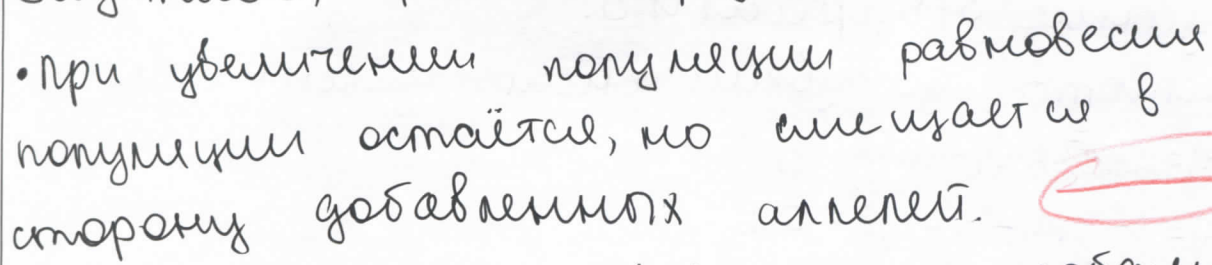 •при увеличении популяции равновесие
популяции остаётся, но смещается в
сторону добавленных аллелей.